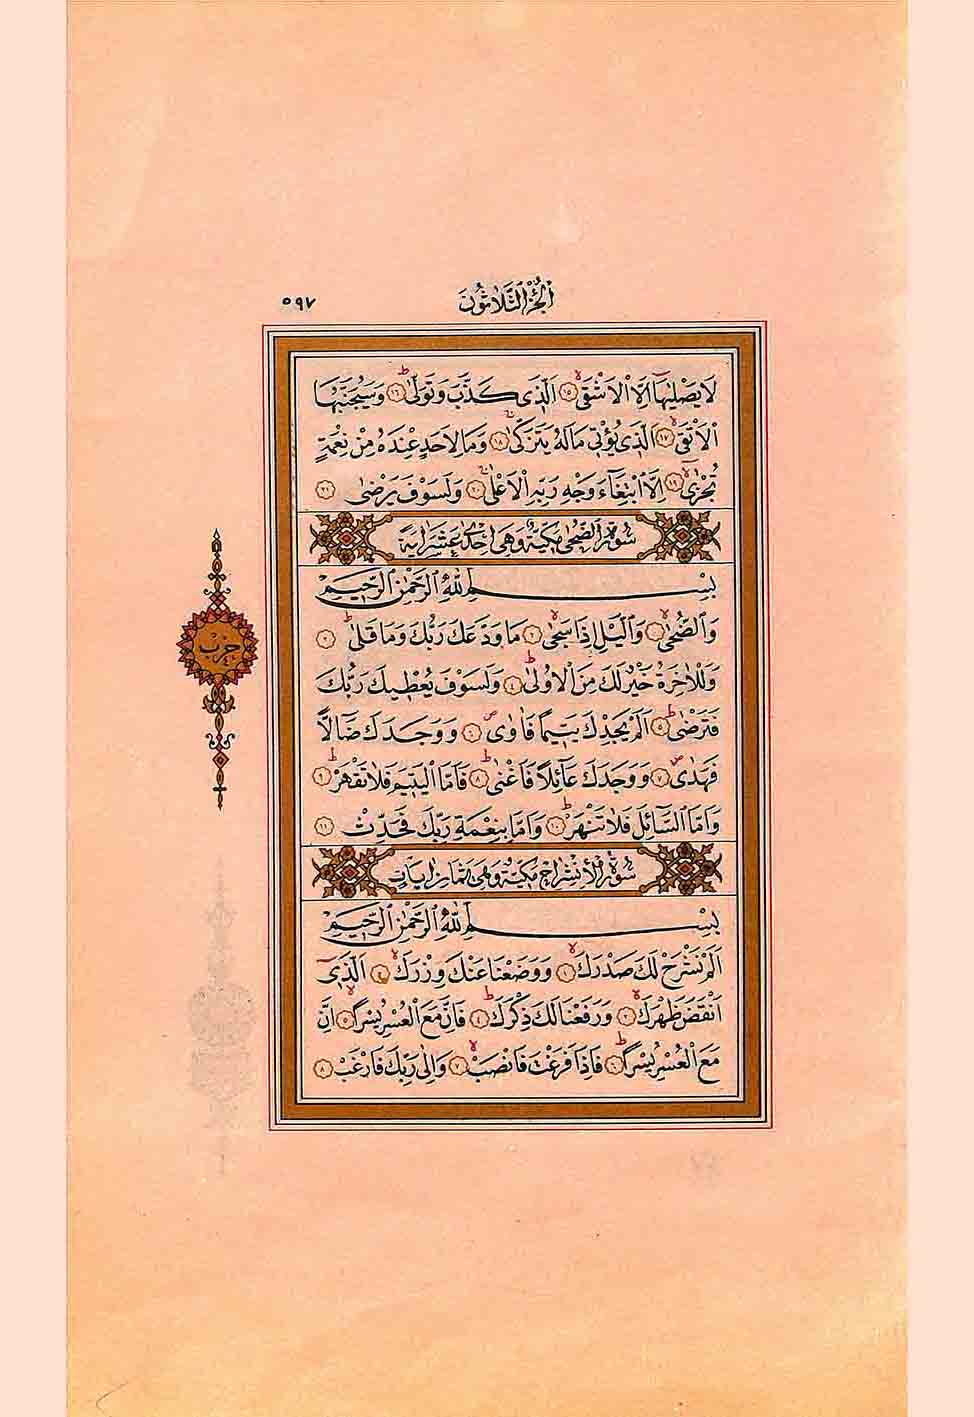 اَلْجُزْءُ الثَّلَاثُونَ ٥٩٧
لَا يَصْلٰيهَٓا اِلَّا الْاَشْقٰىۙ ﴿١٥﴾ اَلَّذ۪ى كَذَّبَ وَتَوَلّٰىۜ ﴿١٦﴾ وَسَيُجَنَّبُهَا
الْاَتْقٰىۙ ﴿١٧﴾ اَلَّذ۪ى يُؤْت۪ى مَالَهُ يَتَزَكّٰىۚ ﴿١٨﴾ وَمَا لِاَحَدٍ عِنْدَهُ مِنْ نِعْمَةٍ
تُجْزٰىۙٓ ﴿١٩﴾ اِلَّا ابْتِغَٓاءَ وَجْهِ رَبِّهِ الْاَعْلٰىۚ ﴿٢٠﴾ وَلَسَوْفَ يَرْضٰى ﴿٢١﴾
سُورَةُ الضُّحٰى مَكِّيَّةٌ وَهِىَ اِحْدٰى عَشَرَ اٰيَةً
بِسْمِ اللّٰهِ الرَّحْمٰنِ الرَّح۪يمِ
وَالضُّحٰىۙ ﴿١﴾ وَالَّيْلِ اِذَا سَجٰىۙ ﴿٢﴾ مَا وَدَّعَكَ رَبُّكَ وَمَا قَلٰىۜ ﴿٣﴾
وَلَلْاٰخِرَةُ خَيْرٌ لَكَ مِنَ الْاُو۫لٰىۜ ﴿٤﴾ وَلَسَوْفَ يُعْط۪يكَ رَبُّكَ
فَتَرْضٰىۜ ﴿٥﴾ اَلَمْ يَجِدْكَ يَت۪يمًا فَاٰوٰىۖ ﴿٦﴾ وَوَجَدَكَ ضَٓالًّا
فَهَدٰىۖ ﴿٧﴾ وَوَجَدَكَ عَٓائِلًا فَاَغْنٰىۜ ﴿٨﴾ فَاَمَّا الْيَت۪يمَ فَلَا تَقْهَرْۜ ﴿٩﴾
وَاَمَّا السَّٓائِلَ فَلَا تَنْهَرْۜ ﴿١٠﴾ وَاَمَّا بِنِعْمَةِ رَبِّكَ فَحَدِّثْ ﴿١١﴾
حِزْب ٤
سُورَةُ الْاِنْشِرَاحِ مَكِّيَّةٌ وَهِىَ ثَمَانِ اٰيَاتٍ
بِسْمِ اللّٰهِ الرَّحْمٰنِ الرَّح۪يمِ
اَلَمْ نَشْرَحْ لَكَ صَدْرَكَۙ ﴿١﴾ وَوَضَعْنَا عَنْكَ وِزْرَكَۙ ﴿٢﴾ اَلَّذ۪ٓى
اَنْقَضَ ظَهْرَكَۙ ﴿٣﴾ وَرَفَعْنَا لَكَ ذِكْرَكَۜ ﴿٤﴾ فَاِنَّ مَعَ الْعُسْرِ يُسْرًاۙ ﴿٥﴾ اِنَّ
مَعَ الْعُسْرِ يُسْرًاۜ ﴿٦﴾ فَاِذَا فَرَغْتَ فَانْصَبْۙ ﴿٧﴾ وَاِلٰى رَبِّكَ فَارْغَبْ ﴿٨﴾